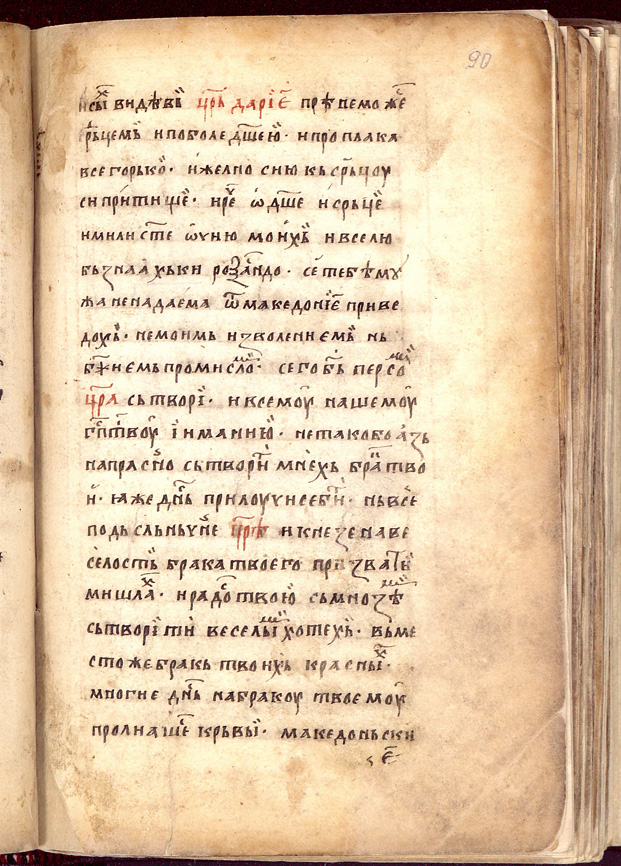 90
сы̑ видѣвь҃ цр҃ь дарїе҃ прѣнеможе҃
ср҃ьцемь и поболе дш҃ею · и проплака
все горько · и желно сию кь ср҃ьцоу
си притище · и ре҃ ѡ дш҃е и ср҃ьце
и мили сте ѡчию моихь и вселю
бьзнлахьки розандо · се тебѣ му
жа ненадаема ѿ македоние҃ приве
дохь · не моимь изволениемь нь
бж҃иемь промисло҃ · сего бь персо҃
цр҃а сьтвори · и всемоу нашемоу
гп҃ств҃оу и иманию · не тако бо азь
напрасно сьтворити мнехь бра҃тво
и · ꙗже дн҃ь прилоучи себи · нь все
подьсльньчне цр҃е и кнезе на ве
селость брака твоего призвать
мишла҃ · и радо҃ твою сьмнозѣ
сьтворити весели҃ хотехь · вь ме
сто же бракь твоихь красны҃ ·
многие дн҃ь на бракоу твоемоу
пролиаше крьвы · македоньски
е҃